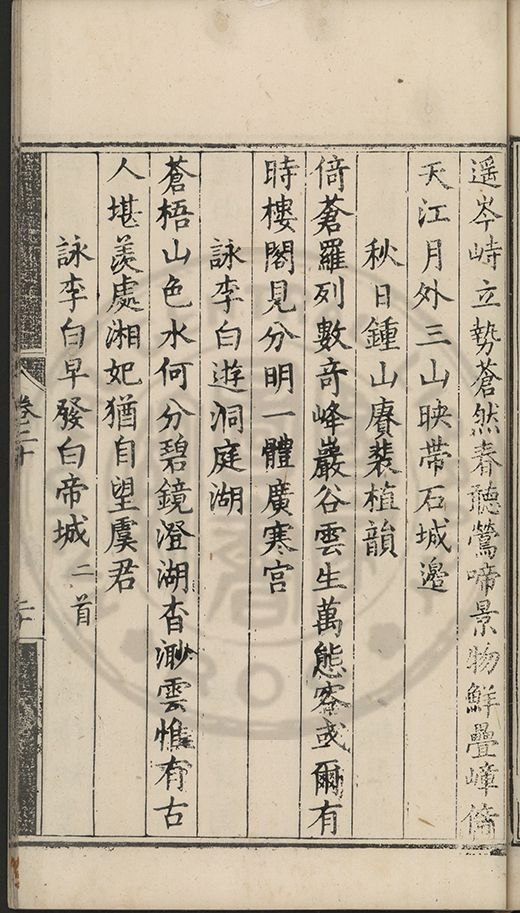 遥岑峙立勢蒼然春聽鶯啼景物鮮疊嶂倚
天江月外三山映帶石城邉
秋日鍾山賡裴植韻
倚蒼羅列數竒峰巖谷雲生萬態容或爾有
時樓閣見分明一體廣寒宫
詠李白遊洞庭湖
蒼梧山色水何分碧鏡澄湖杳渺雲惟有古
人堪羡處湘妃猶自望虞君
詠李白早發白帝城 二首
卷二十